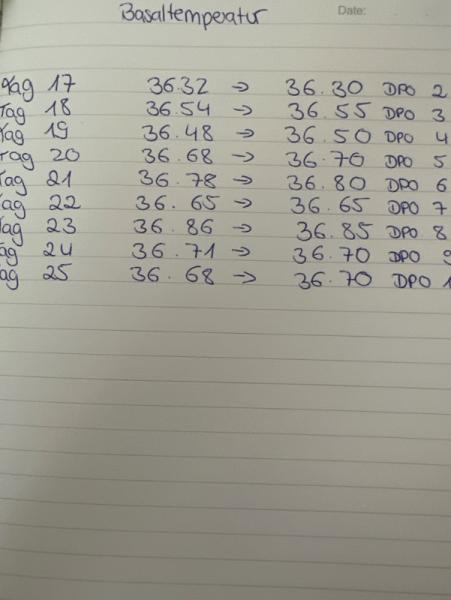 Basaltemperatur Date:
Tag 17 36.32 → 36.30 DPO 2
Tag 18 36.54 → 36.55 DPO 3
Tag 19 36.48 → 36.50 DPO 4
Tag 20 36.68 → 36.70 DPO 5
Tag 21 36.78 → 36.80 DPO 6
Tag 22 36.65 → 36.65 DPO 7
Tag 23 36.86 → 36.85 DPO 8
ag 24 36.71 → 36.70 DPO 9
ag 25 36.68 → 36.70 DPO 1